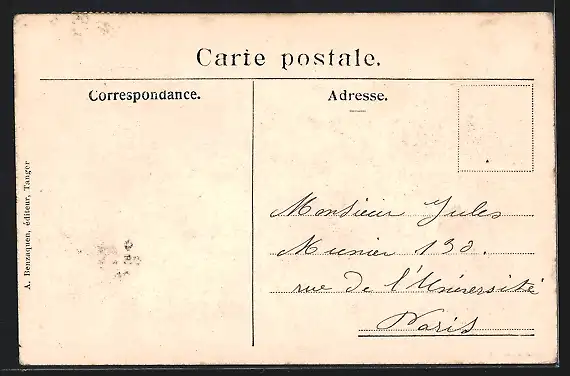 Carte postale.
Correspondance.
Adresse.
A. Benzaquen, éditeur, Tanger
Monsieur Jules
Munier 130.
rue de l'Université
Paris